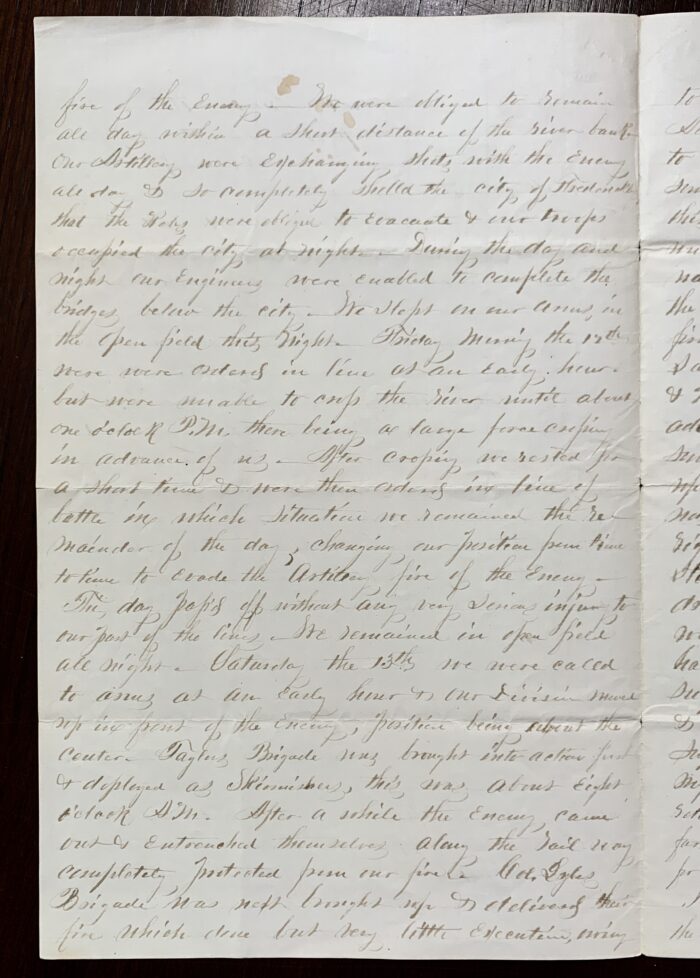 fire of the Enemy – We were obliged to remain
all day within a short distance of the river bank
Our Artillery were Exchanging shots with the Enemy
all day & so completely shelld the city of
that the Rebs were oblige to Evacuate & our troops
occupied the city at night – During the day and
night our Engineers were enabled to complete the
bridges below the city – We slept on our arms in
the open field this night – Friday Morning the 12th
were were orderd in line at an Early hour
but were unable to cross the river until about
one o'clock P.M. there being a large force crossing
in advance of us – After crossing we rested for
a short time & were then orderd in line of
battle in which situation we remained the re-
mainder of the day, changing our position from time
to time to Evade the Artillery fire of the Enemy –
The day pass'd off without any very serious injury to
our part of the line – We remained in open field
all night – Saturday the 13th we were called
to arms at an Early hour & our Division moved
up in front of the Enemy, position being about the
center – Taylors Brigade was brought into action first
& deployed as Skirmishers, this was about Eight
o'clock A.M. – After a while the Enemy came
out & Entrenched themselves along the rail way
completely protected from our fire – Col.
Brigade was next brought up & deliverd their
fire which done but very little Execution, owing
to
to
the
&
ad
far
the